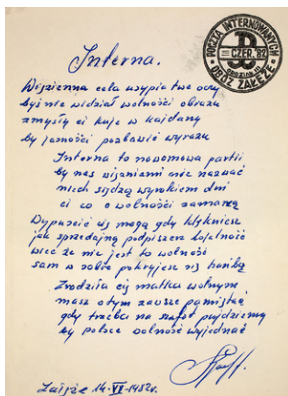 POCZTA INTERNOWANYCH
CZER. 82
OBÓZ ZAŁĘŻE
Interna.
Więzienna cela usypia twe oczy
byś nie widział wolności obrazu
zmysły ci kuje w kajdany
by jasności pozbawić wyrazu
Interna to nowomowa partii
by nas więźniami nie nazwać
niech siedzą wyrokiem dni
ci co o wolności zamarzą
Wypuścić cię mogą gdy klękniesz
jak sprzedajną podpiszesz lojalność
wiec że nie jest to wolność
sam w sobie pokryjesz się hańbą
Zrodziła cię matka wolnym
masz o tym zawsze pamiętać
gdy trzeba na nafot pójdziemy
by polsce wolność wyjednać
Załęże 14-VI-1982r.